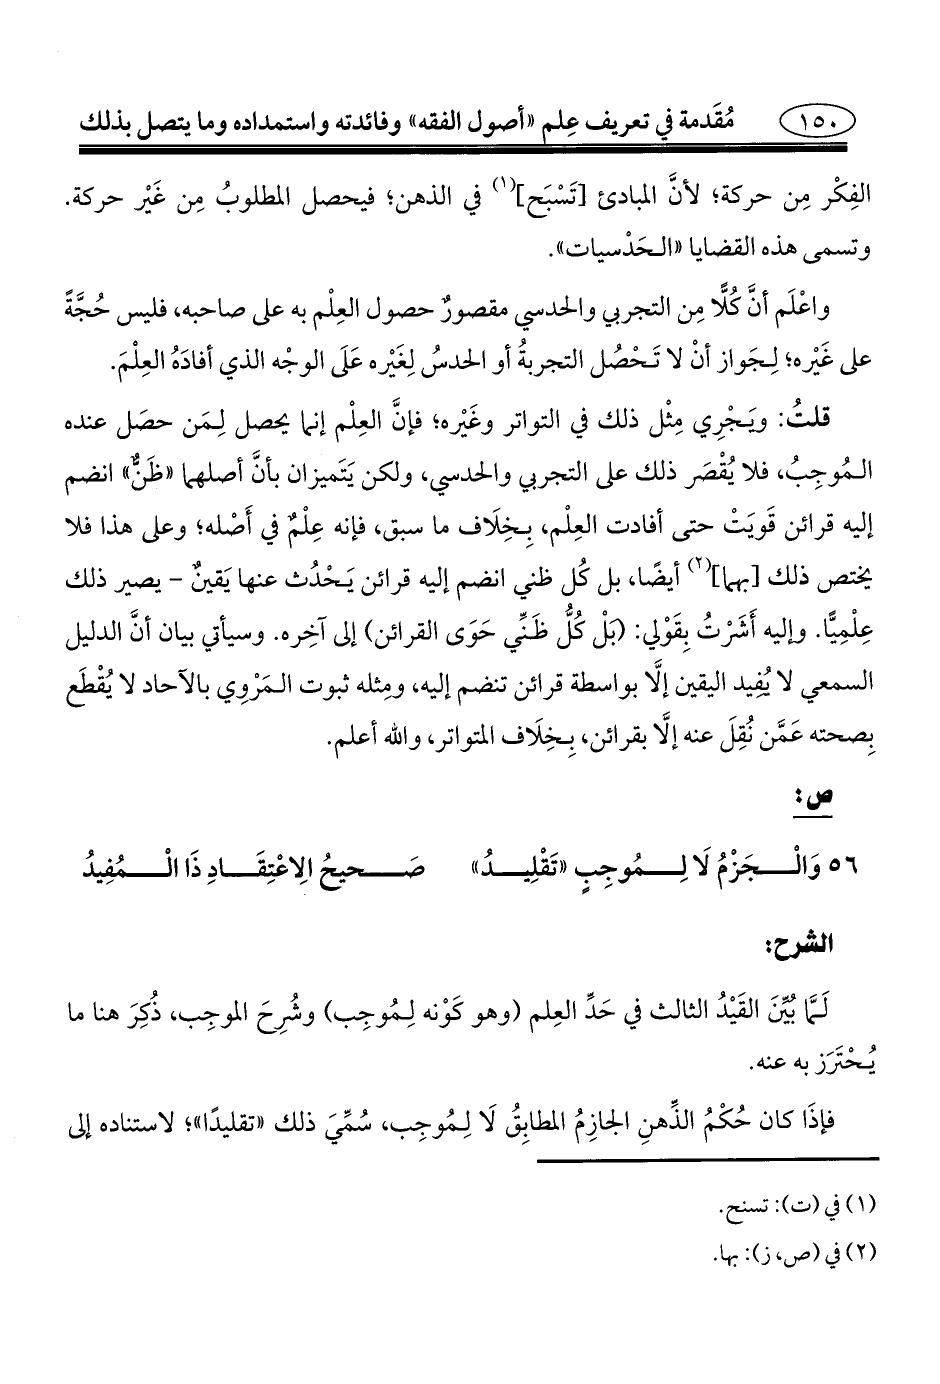 ١٥٠ مُقَدمة في تعريف عِلم «أصول الفقه» وفائدته واستمداده وما يتصل بذلك
الفِكْر مِن حركة؛ لأنَّ المبادئ [تَسْبَح](١) في الذهن؛ فيحصل المطلوبُ مِن غَيْر حركة.
وتسمى هذه القضايا «الـحَدْسيات».
واعْلَم أنَّ كُلًّا مِن التجربي والحدسي مقصورٌ حصول العِلْم به على صاحبه، فليس حُجَّةً
على غَيْره؛ لِـجَواز أنْ لا تَـحْصُل التجربةُ أو الحدسُ لِغَيْره عَلَى الوجْه الذي أفادَهُ العِلْمَ.
قلتُ: ويَـجْرِي مِثْل ذلك في التواتر وغَيْره؛ فإنَّ العِلْم إنما يحصل لِـمَن حصَل عنده
الـمُوجِبُ، فلا يُقْصَر ذلك على التجربي والحدسي، ولكن يَتَميزان بأنَّ أصلهما «ظَنٌّ» انضم
إليه قرائن قَوِيَتْ حتى أفادت العِلْم، بِـخِلَاف ما سبق، فإنه عِلْمٌ في أَصْله؛ وعلى هذا فلا
يختص ذلك [بهما](٢) أيضًا، بل كُل ظني انضم إليه قرائن يَـحْدُث عنها يَقينٌ – يصير ذلك
عِلْمِيًّا. وإليه أَشَرْتُ بِقَولي: (بَل كُلُّ ظَنِّي حَوَى القرائن) إلى آخِره. وسيأتي بيان أنَّ الدليل
السمعي لا يُفِيد اليقين إلَّا بواسطة قرائن تنضم إليه، ومِثله ثبوت الـمَرْوِي بالآحاد لا يُقْطَع
بِصحته عَمَّن نُقِلَ عنه إلَّا بقرائن، بِـخِلَاف المتواتر، والله أعلم.
ص:
٥٦ وَالْـجَزْمُ لَا لِـمُوجِبٍ «تَقْلِيدُ» صَـحيحُ الِاعْتِقَـادِ ذَا الْـمُفِيدُ
الشرح:
لَـمَّا بُيِّنَ القَيْدُ الثالث في حَدِّ العِلم (وهو كَوْنه لِـمُوجِب) وشُرِحَ الموجِب، ذُكِرَ هنا ما
يُـحْتَرَز به عنه.
فإذَا كان حُكْمُ الذِّهنِ الجازِمُ المطابِقُ لَا لِـمُوجِب، سُمِّيَ ذلك «تقليدًا»؛ لاستناده إلى
(١) في (ت): تسنح.
(٢) في (ص، ز): بها.